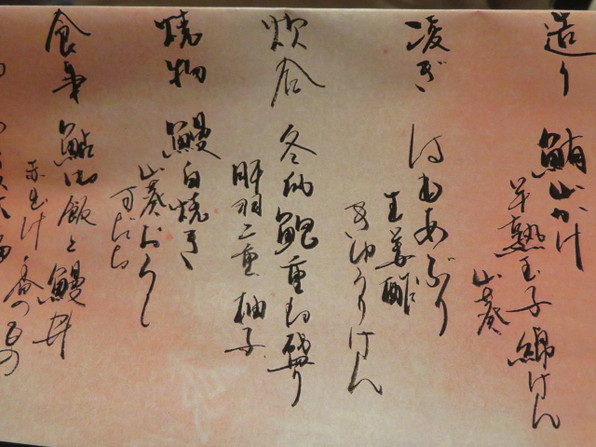 造り 鮪山かけ
半熟玉子 卵けん
山葵
凌ぎ はもあぶり
生姜酢
きゅうりけん
炊合 冬瓜鱧重ね盛り
肝羽二重 柚子
焼物 鰻白焼き
山葵おろし
すだち
食事 鮎御飯と鰻丼
赤だし 香のもの